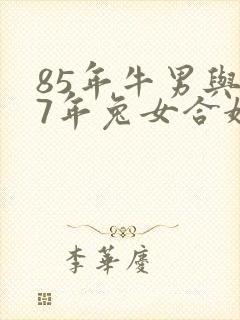 85年牛男與
7年兔女合
李華慶